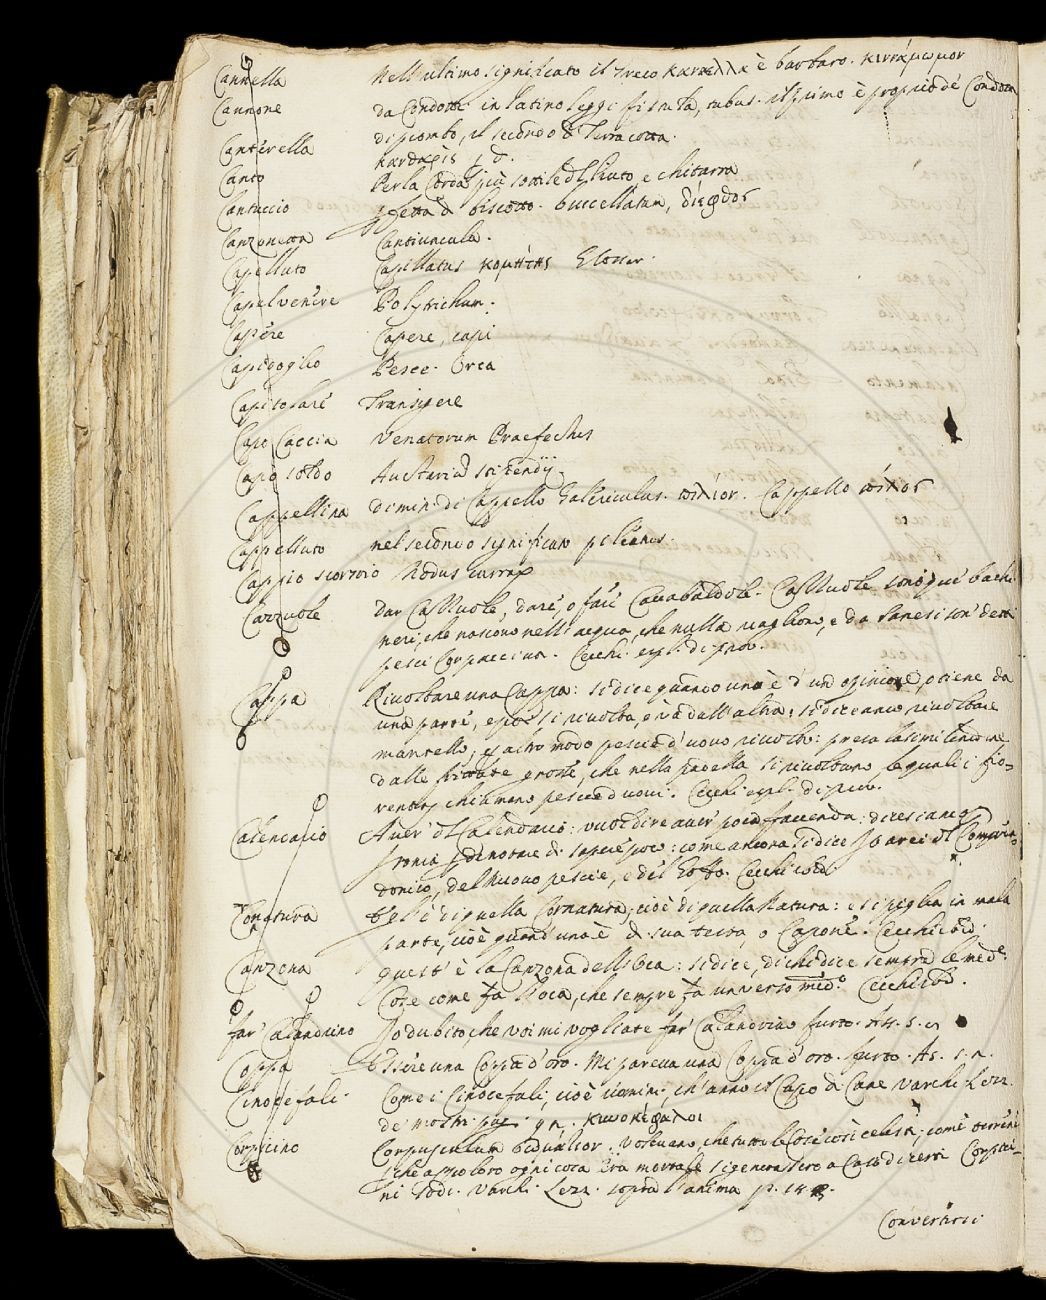 Cannella Nell'ultimo significato il Greco καννελλα è barbaro. κιννάμωμον
Cannone da Condotti in latino leggi fistula, tubus. il primo è proprio de Condotti
di piombo, il secondo di Terra cotta.
Canterella κανθαρὶς ίδ.
Canto Per la Corda più sottile del liuto e chitarra
Cantuccio fetta di biscotto. buccellatum, δίπυρος
Canzonetta Cantiuncula.
Capelluto Capillatus κομήτης Glosser.
Capelvenere Polytrichum.
Capere Capere, capi
Capidoglio Pesce. Orca
Capitolare Transigere
Capo Caccia Venatorum Praefectus
Capo soldo Auctarium stipendij.
Cappellina dimin. di Cappello Galericulus. πιλίον. Cappello πίλος
Cappelluto nel secondo significato pileatus.
Cappio scorsoio Nodus currax
Cazzuole Dar Cazzuole, dare, o fare Cacabaldole. Cazzuole sono que' bachi
neri, che nascono nell'acqua, che nulla vagliono, e da Sanesi son detti
pesci Cappuccini. Cecchi espl. di prov.
Cappa Rivoltare una Cappa: si dice quando uno è d'un opinione, o tiene da
una parte, e poi si rivolta, e va dall'altra: si dice anco rivoltare
mantello, et altro modo pesce d'uovo rivolto: presa la similitudine
dalle frittate grosse, che nella padella si rivoltano, le quali i fio-
rentini chiamano pesce d'uovi. Cecchi espl. di prov.
Calendario Aver il Calendario: vuol dire aver poca faccenda: dicesi anco
donico, del Nuovo pesce, e del Goffo. Cecchi ibid.
Cornatura Egli è di quella Cornatura, cioè di quella Natura: e si piglia in mala
parte, cioè quand'uno è di sua testa, o Capone. Cecchi ibid.
Canzona Quest'è la Canzona dell'Oca: si dice, di chi dice sempre le med.e
Cose come fa l'Oca, che sempre fa un verso med.o Cecchi ibid.
far Calandrino Io dubito che voi mi vogliate far Calandrino furto. At. 5.
Coppa Essere una Coppa d'oro. Mi pareva una Coppa d'oro. furto. At.
Cinocefali. Come i Cinocefali, cioè uomini, ch'anno il Capo di Cane Varchi Lezz.
de mostri κυνοκέφαλοι
Corpicino Corpusculum volevano, che tutte le Cose così celesti, come terrene
che appo loro ogni cosa era mortale si generassero a Caso di certi Corpici-
ni Varchi. Lezz. sopra l'anima p.
Convertirsi